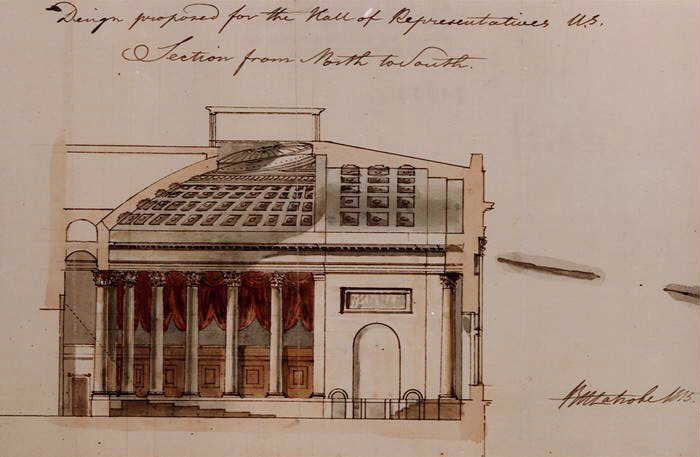 Design proposed for the Hall of Representatives U.S.
Section from North to South.
BHLatrobe